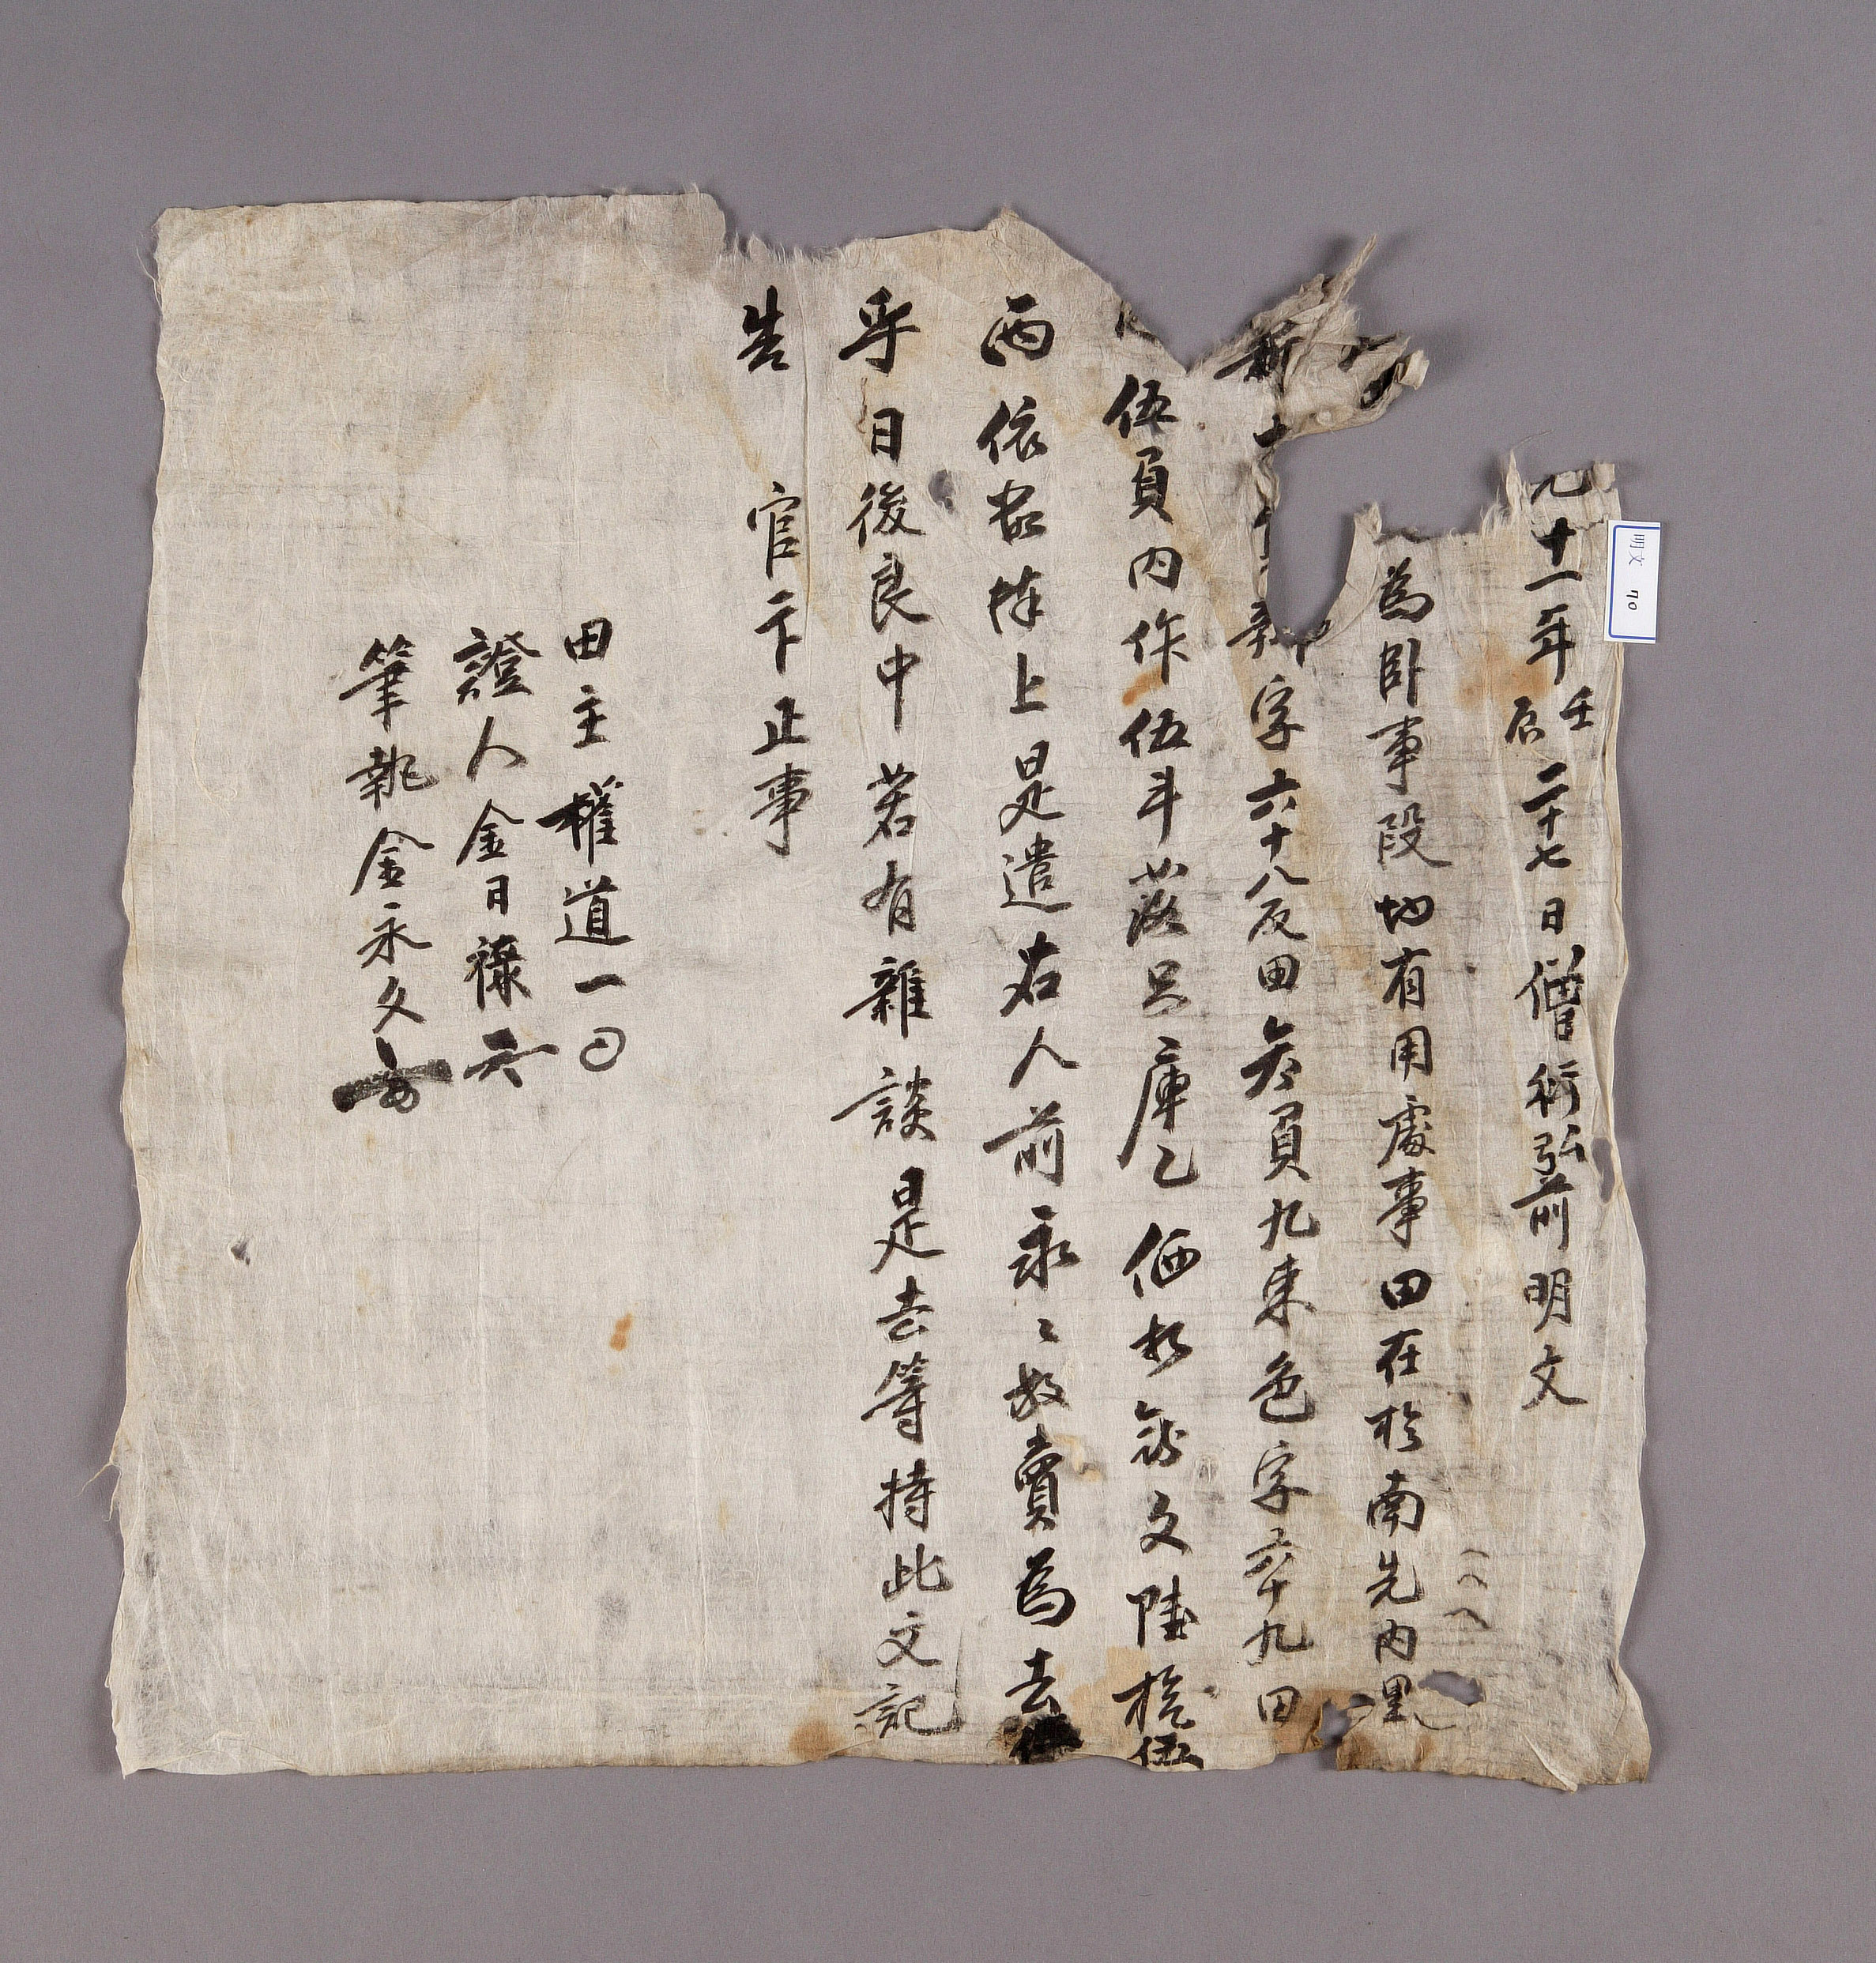 十一年壬辰二十七日僧衍弘前明文
為卧事段切有用處事田在於南先內里
字六十八反田叁負九束色字六十九田
伍負內作伍斗落只庫乙価折錢文陸拾伍
兩依數捧上是遣右人前永〻放賣為去
乎日後良中若有雜談是去等持此文記
告官卞正事
田主權道一
證人金日祿
筆執金永久
明文 90